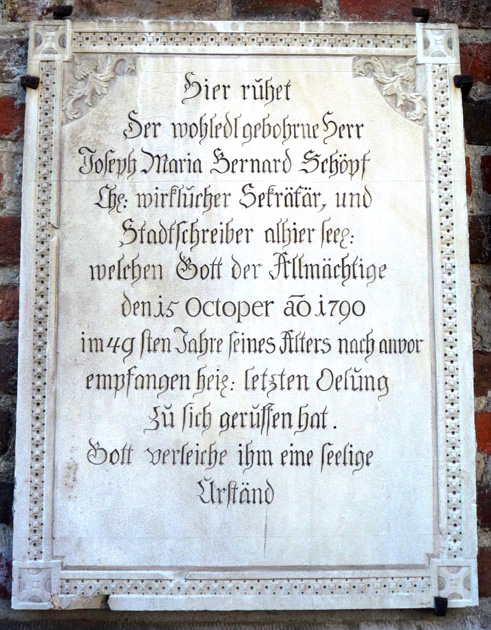 Hier ruhet
Der wohledlgebohrne Herr
Joseph Maria Bernard Schöpf
Chf: wirklucher Sekrätär, und
Stadtschreiber alhier seel:
welchen Gott der Allmächtige
den 15 Octoper aō 1790
im 49sten Jahre seines Alters nach anvor
empfangen heig: letzten Oelung
zu sich geruffen hat.
Gott verleiche ihm eine seelige
Urständ